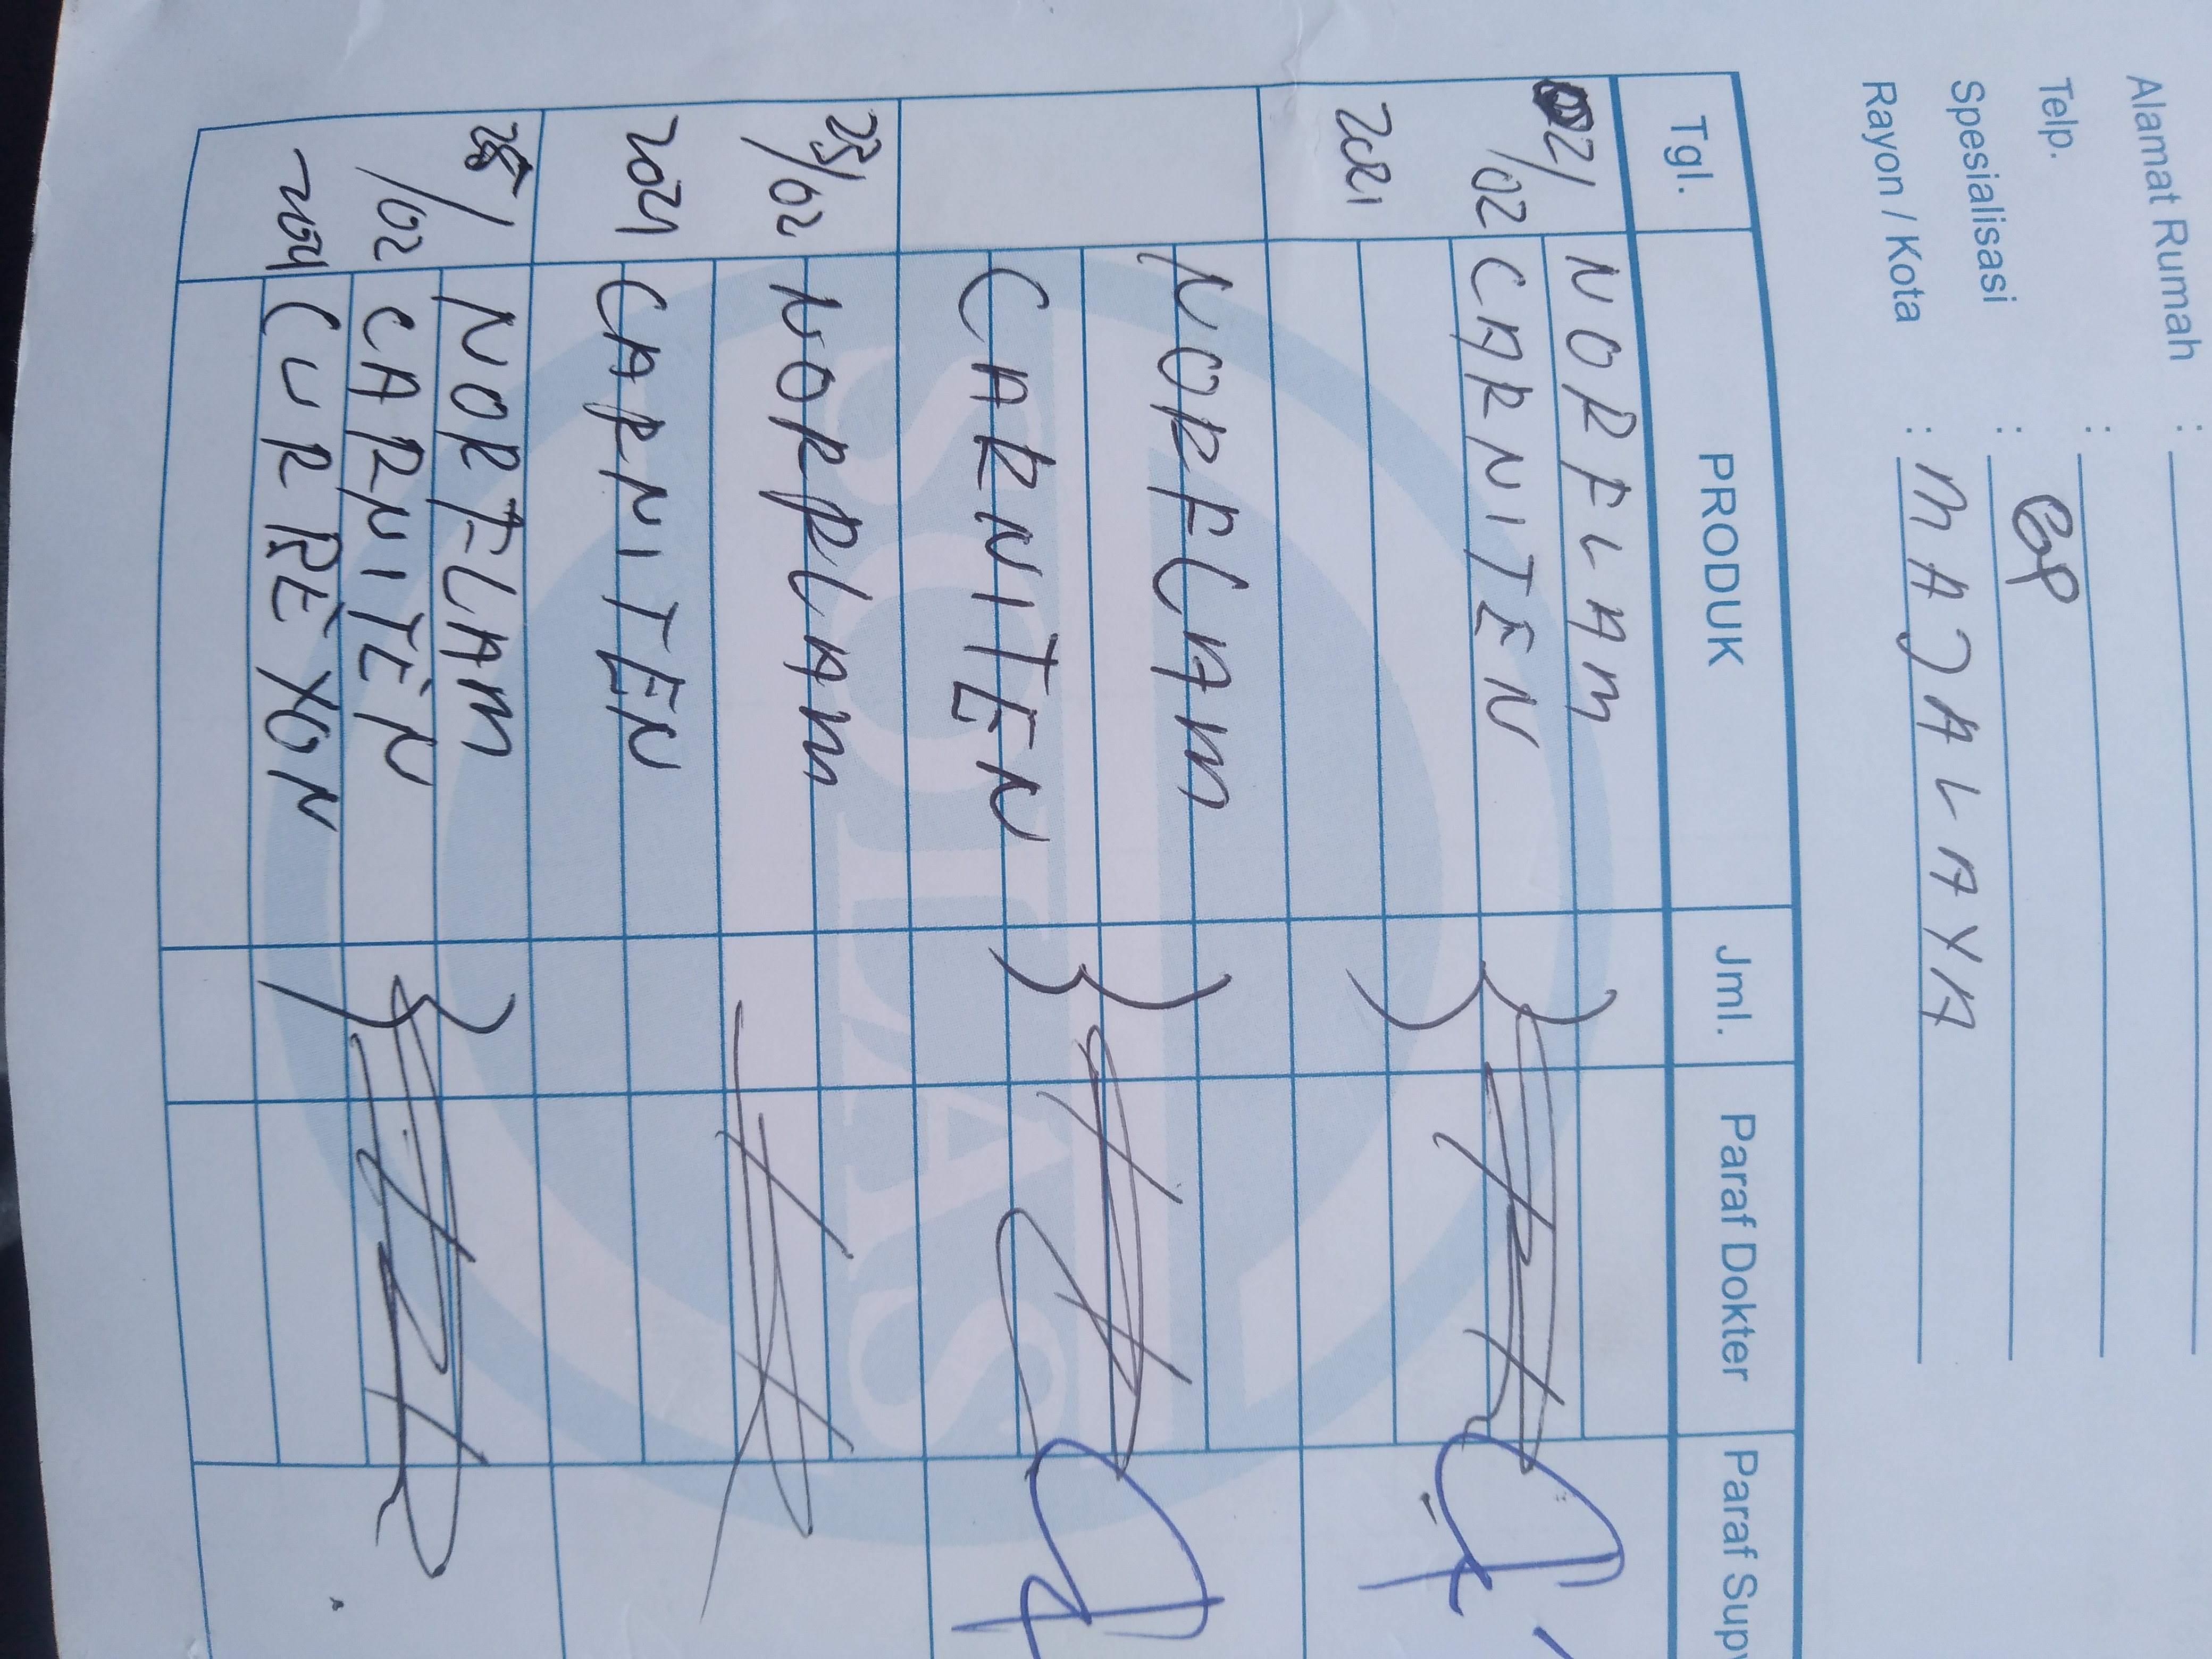 Alamat Rumah :
Telp. :
Spesialisasi :
Rayon / Kota : MAJALAYA
Tgl. PRODUK Jml. Paraf Dokter Paraf Supv
02/02 2021 NORFLAM
CARNITEN
NORFLAM
CARNITEN
23/02 2021 NORPLAM
CARNITEN
/02 2021 NORFLAM
CARNITEN
CURREXON
SOLAS